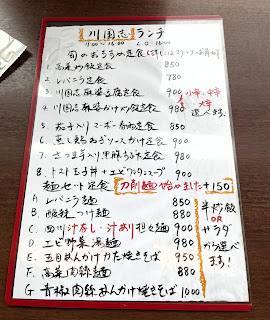 川国志 ランチ
11:00〜16:00 L.O. 16:00
旬のおすすめ定食
1. 高菜炒飯定食 850
2. レバニラ定食 780
3. 川国志麻婆豆腐定食 900
4. 川国志麻婆かけ炒飯定食 980
小辛、中辛
大辛
選べます
5. 茄子入りマーボー春雨定食 850
6. 蒸し鶏ねぎソースかけ定食 900
7. さつま芋入り黒酢 定食 900
8. トマト玉子丼+エビワンタンスープ 900
麺セット定食 刀削麺始めました +150
A レバニラ麺 850
B 酸辣つけ麺 880
C 四川汁なし・汁あり担々麺 900
D エビ野菜湯麺 980
E 五目あんかけかた焼きそば 950
F 高菜肉絲麺 880
G 青椒肉絲あんかけ焼きそば 1000
半炒飯
OR
サラダ
から選べ
ます!